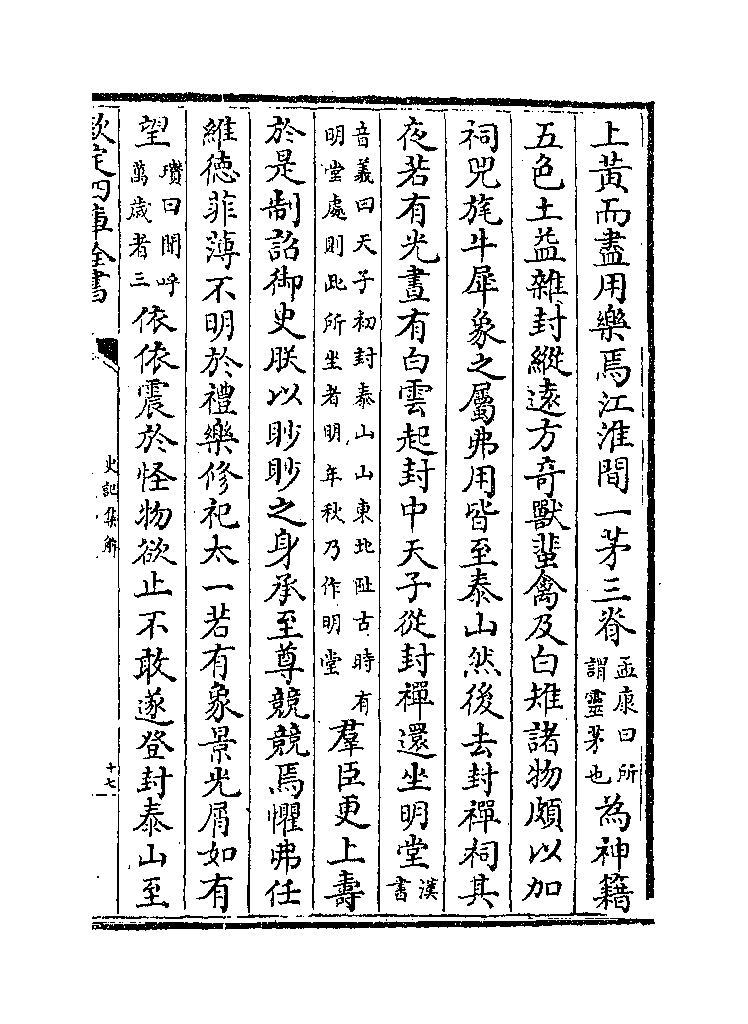 上黃而盡用樂焉江淮間一茅三脊孟康曰所謂靈茅也為神籍
五色土益雜封縱遠方奇獸蜚禽及白雉諸物頗以加
祠兕旄牛犀象之屬弗用皆至泰山然後去封禪祠其
夜若有光晝有白雲起封中天子從封禪還坐明堂漢書
音義曰天子初封泰山山東北阯古時有明堂處則此所坐者明年秋乃作明堂羣臣更上壽
於是制詔御史朕以眇眇之身承至尊兢兢焉懼弗任
維德菲薄不明於禮樂修祀太一若有象景光屑如有
望瓚曰聞呼萬歲者三依依震於怪物欲止不敢遂登封泰山至
欽定四庫全書
史記集解
十七